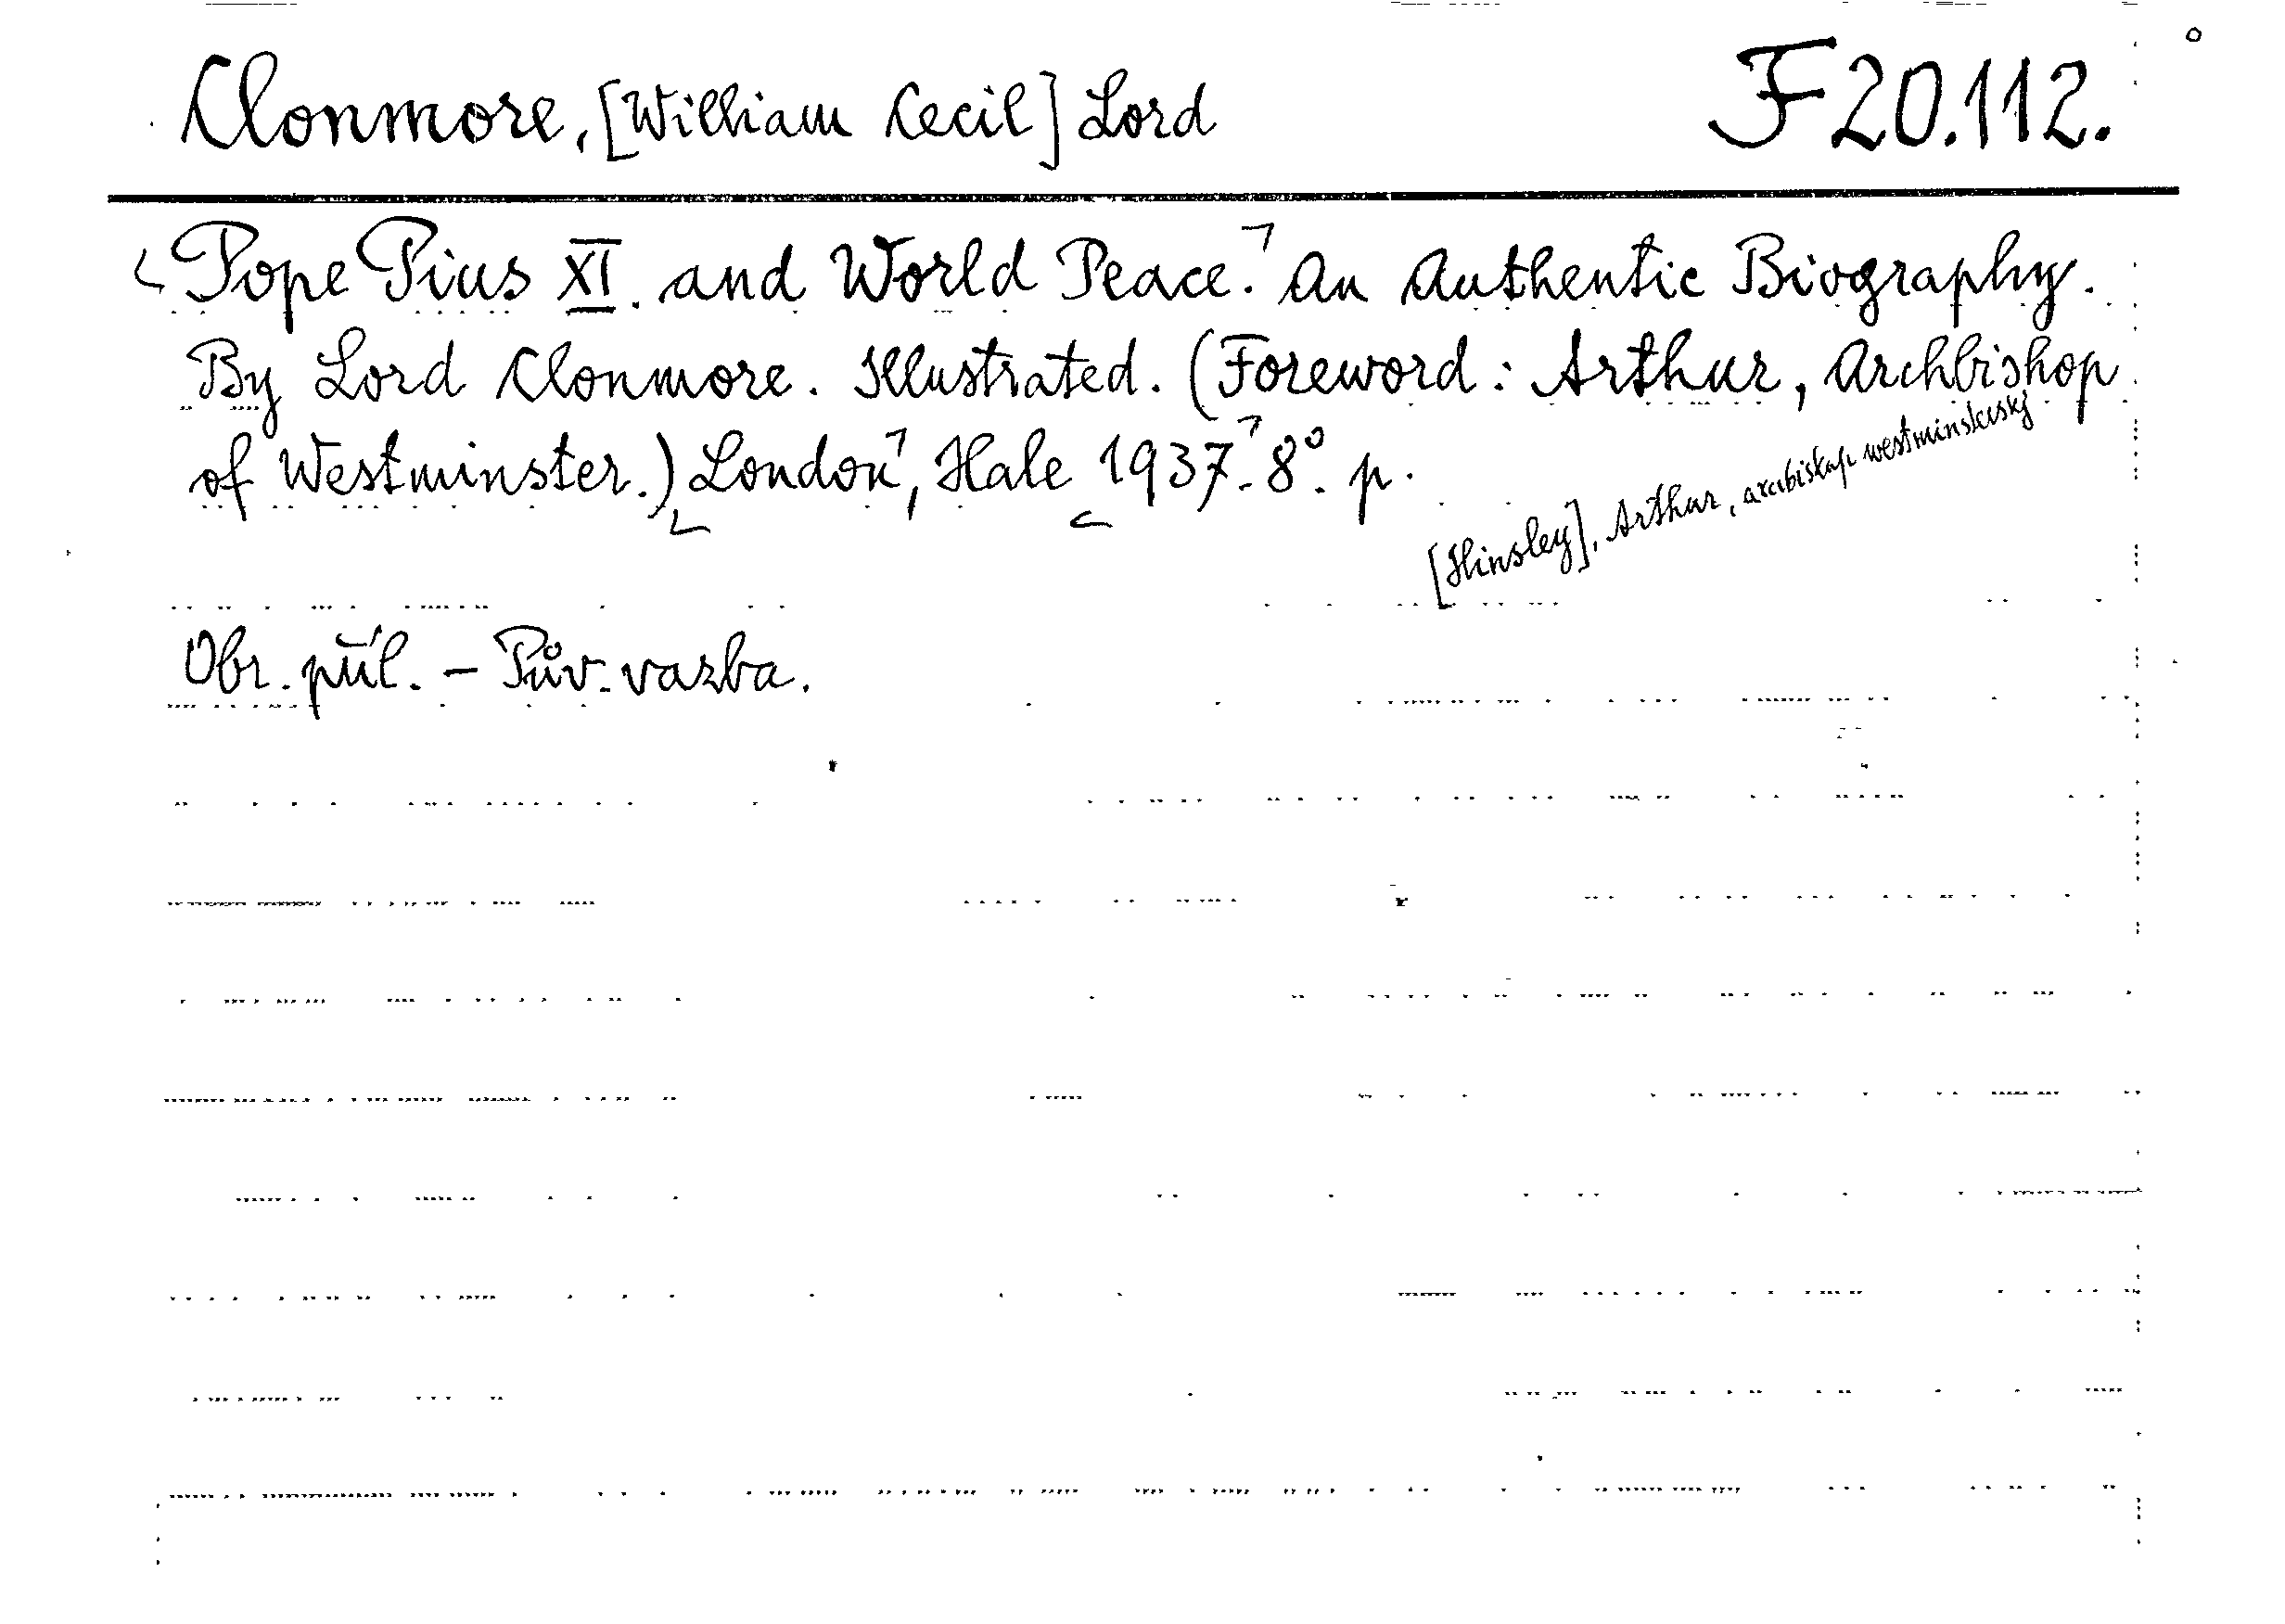 Clonmore, [William Cecil] Lord F 20.112.
Pope Pius XI. and World Peace. An Authentic Biography.
By Lord Clonmore. Illustrated. (Foreword: Arthur, Archbishop
of Westminster.) London, Hale 1937. 8°. p.
[Hinsley], Arthur, arcibiskup westminsterský
Obr. příl. - Pův. vazba.